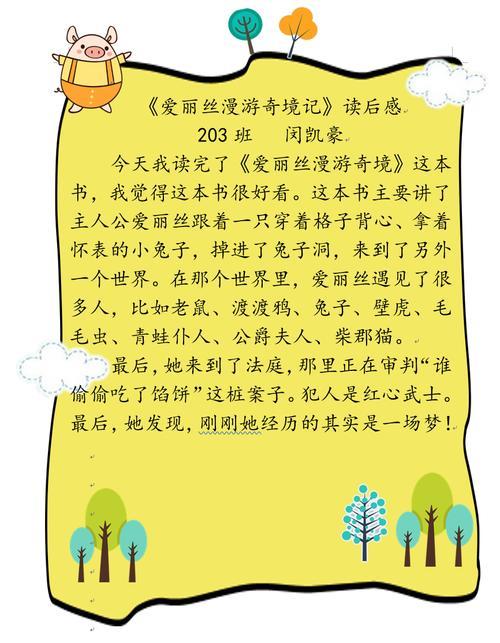 《爱丽丝漫游奇境记》读后感
203班 闵凯豪
今天我读完了《爱丽丝漫游奇境》这本
书，我觉得这本书很好看。这本书主要讲了
主人公爱丽丝跟着一只穿着格子背心、拿着
怀表的小兔子，掉进了兔子洞，来到了另外
一个世界。在那个世界里，爱丽丝遇见了很
多人，比如老鼠、渡渡鸦、兔子、壁虎、毛
毛虫、青蛙仆人、公爵夫人、柴郡猫。
最后，她来到了法庭，那里正在审判“谁
偷偷吃了馅饼”这桩案子。犯人是红心武士。
最后，她发现，刚刚她经历的其实是一场梦！